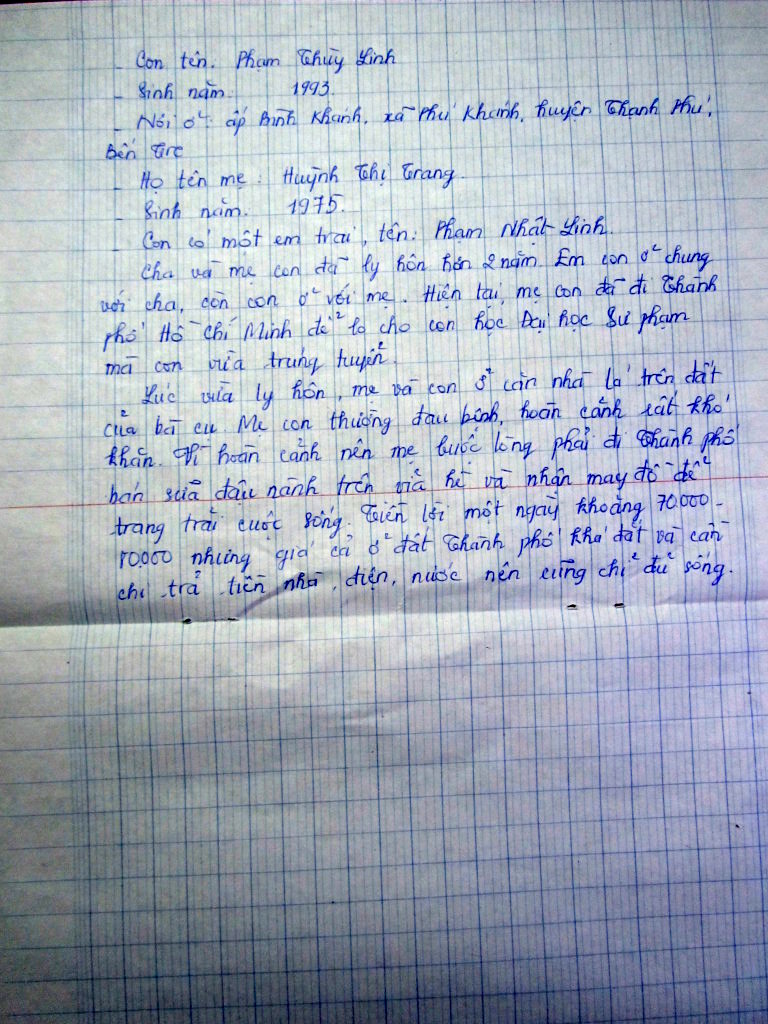 - Con tên. Phạm Thùy Linh
- Sinh năm: 1993.
- Nơi ở: ấp Bình Khánh, xã Phú Khánh, huyện Thạnh Phú,
Bến Tre
- Họ tên mẹ: Huỳnh Thị Trang.
- Sinh năm. 1975.
- Con có một em trai, tên: Phạm Nhật Linh.
Cha và mẹ con đã ly hôn hơn 2 năm. Em con ở chung
với cha, còn con ở với mẹ. Hiện tại, mẹ con đã đi Thành
phố Hồ Chí Minh để lo cho con học Đại học Sư phạm
mà con vừa trúng tuyển.
Lúc vừa ly hôn, mẹ và con ở căn nhà lá trên đất
của bà cụ. Mẹ con thường đau bệnh, hoàn cảnh rất khó
khăn. Vì hoàn cảnh nên mẹ buộc lòng phải đi Thành phố
bán sữa đậu nành trên vỉa hè và nhận may đồ để
trang trải cuộc sống. Tiền lời một ngày khoảng 70.000 -
nhưng giá cả ở đất Thành phố khá đắt và cần
chi trả tiền nhà, điện, nước nên cũng chỉ đủ sống.